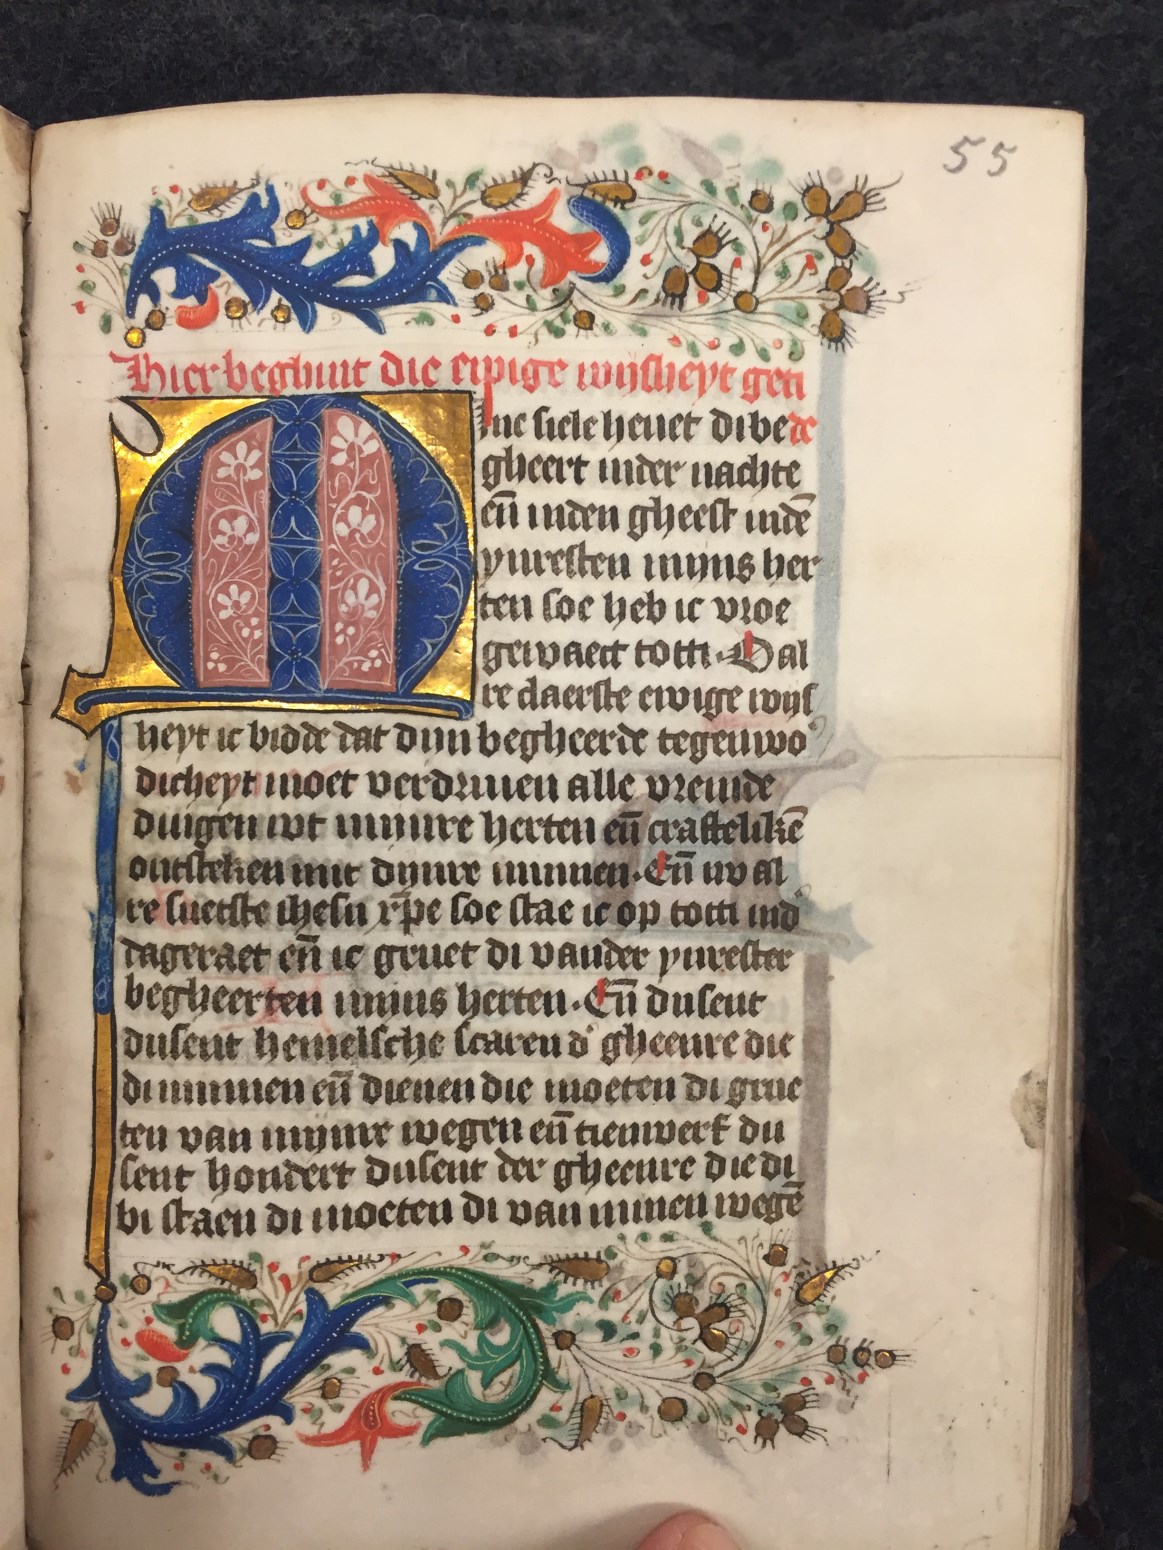 55
Hier beghint die ewige wijsheyt geti
Mine siele hevet di be de
gheert inder nachte
eñ inden gheest indē
ynresten mijns her
ten soe heb ic vroe
gewaect totti. O al
re claerste ewige wijs
heyt ic bidde dat dijn begheerde tegenwo
dicheyt moet verdriuen alle vremde
dingen wt mijnre herten eñ crachtelikē
ontsteken mit dijnre minnen. Eñ nv al
re suetste ihesu xp̄e soe stae ic op totti ind
dageraet eñ ic gruet di vander ynrester
begheerten mijns herten. Eñ dusent
dusent hemelsche scaren d' gheenre die
di minnen eñ dienen die moeten di grue
ten van mijnre wegen eñ tienwerf du
sent hondert dusent der gheenre die di
bi staen di moeten di van minen wegē